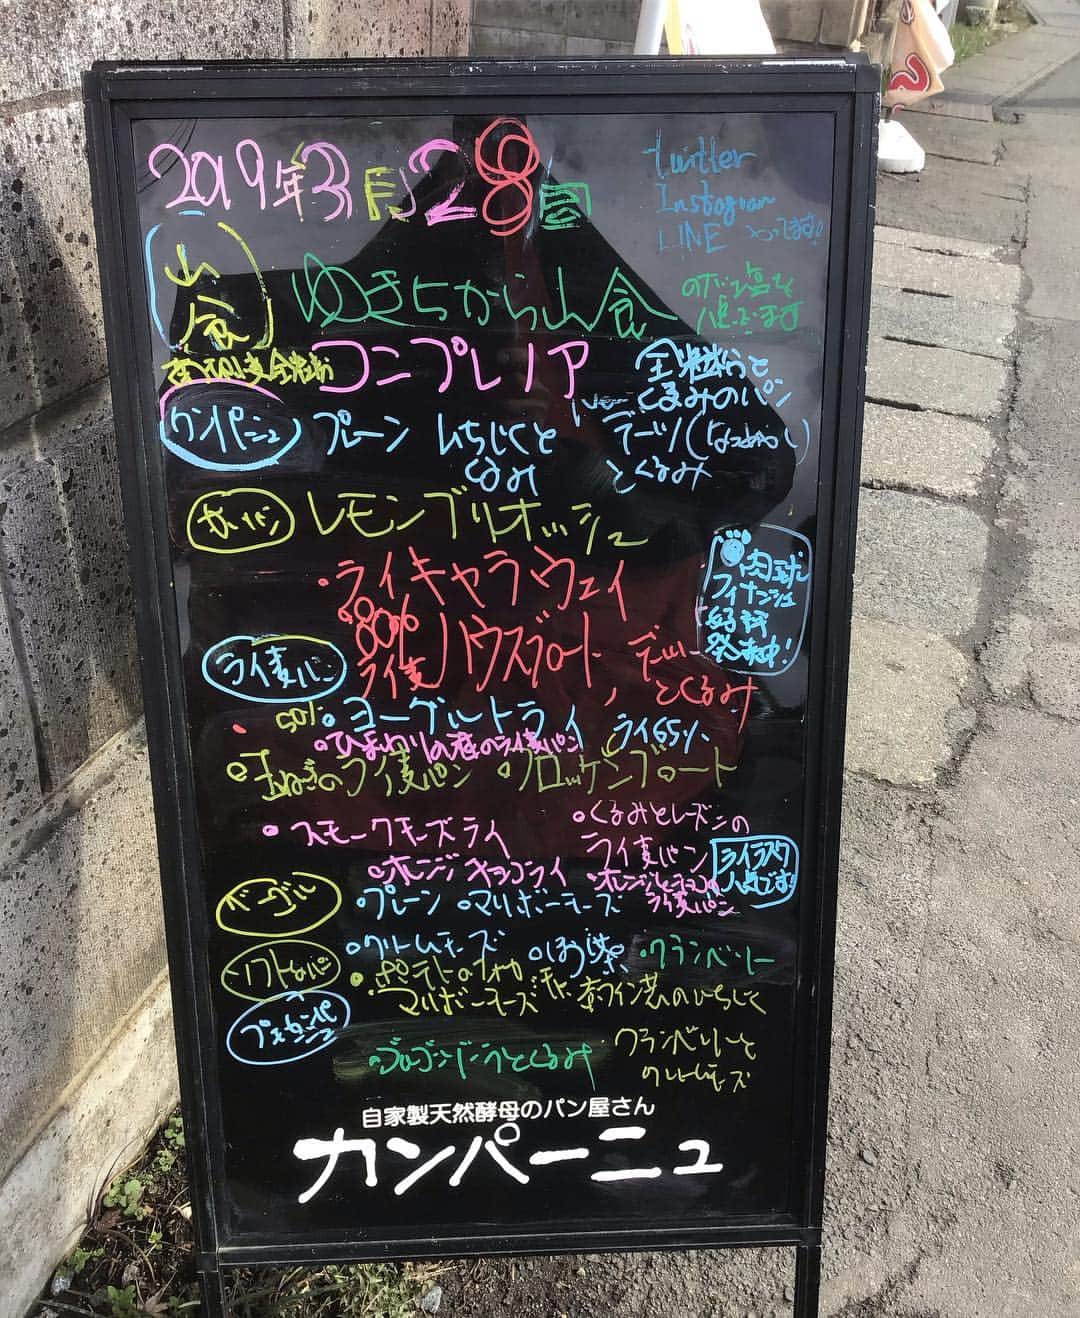 2019年3月28日
twitter
Instagram
LINE やってます!
山食
ゆきちから山食
コンプレノア
全粒粉と
くるみのパン
カンパーニュ
プレーン
いちじくと
くるみ
デーツ(なつめやし)
とくるみ
レモンブリオッシュ
肉球
フィナンシェ
好評
発売中!
・ライキャラウェイ
80%
ライ麦
ハウスブロート,
デーツ
とくるみ
ライ麦パン
50%
ヨーグルトライ
ライ65%
ひまわりの種のライ麦パン
玉ねぎのライ麦パン
・ブロッケンブロート
・スモークチーズライ
・くるみとレーズンの
ライ麦パン
ライラスク
人気です!
・オレンジチョコライ
・オレンジとチョコの
ライ麦パン
ベーグル
・プレーン
・マリボーチーズ
・クリームチーズ
・ほうじ茶
・クランベリー
ソフトパン
・ポテトの
マリボーチーズ
赤ワイン煮のいちじく
ゴルゴンゾーラとくるみ
クランベリーと
クリームチーズ
自家製天然酵母のパン屋さん
カンパーニュ